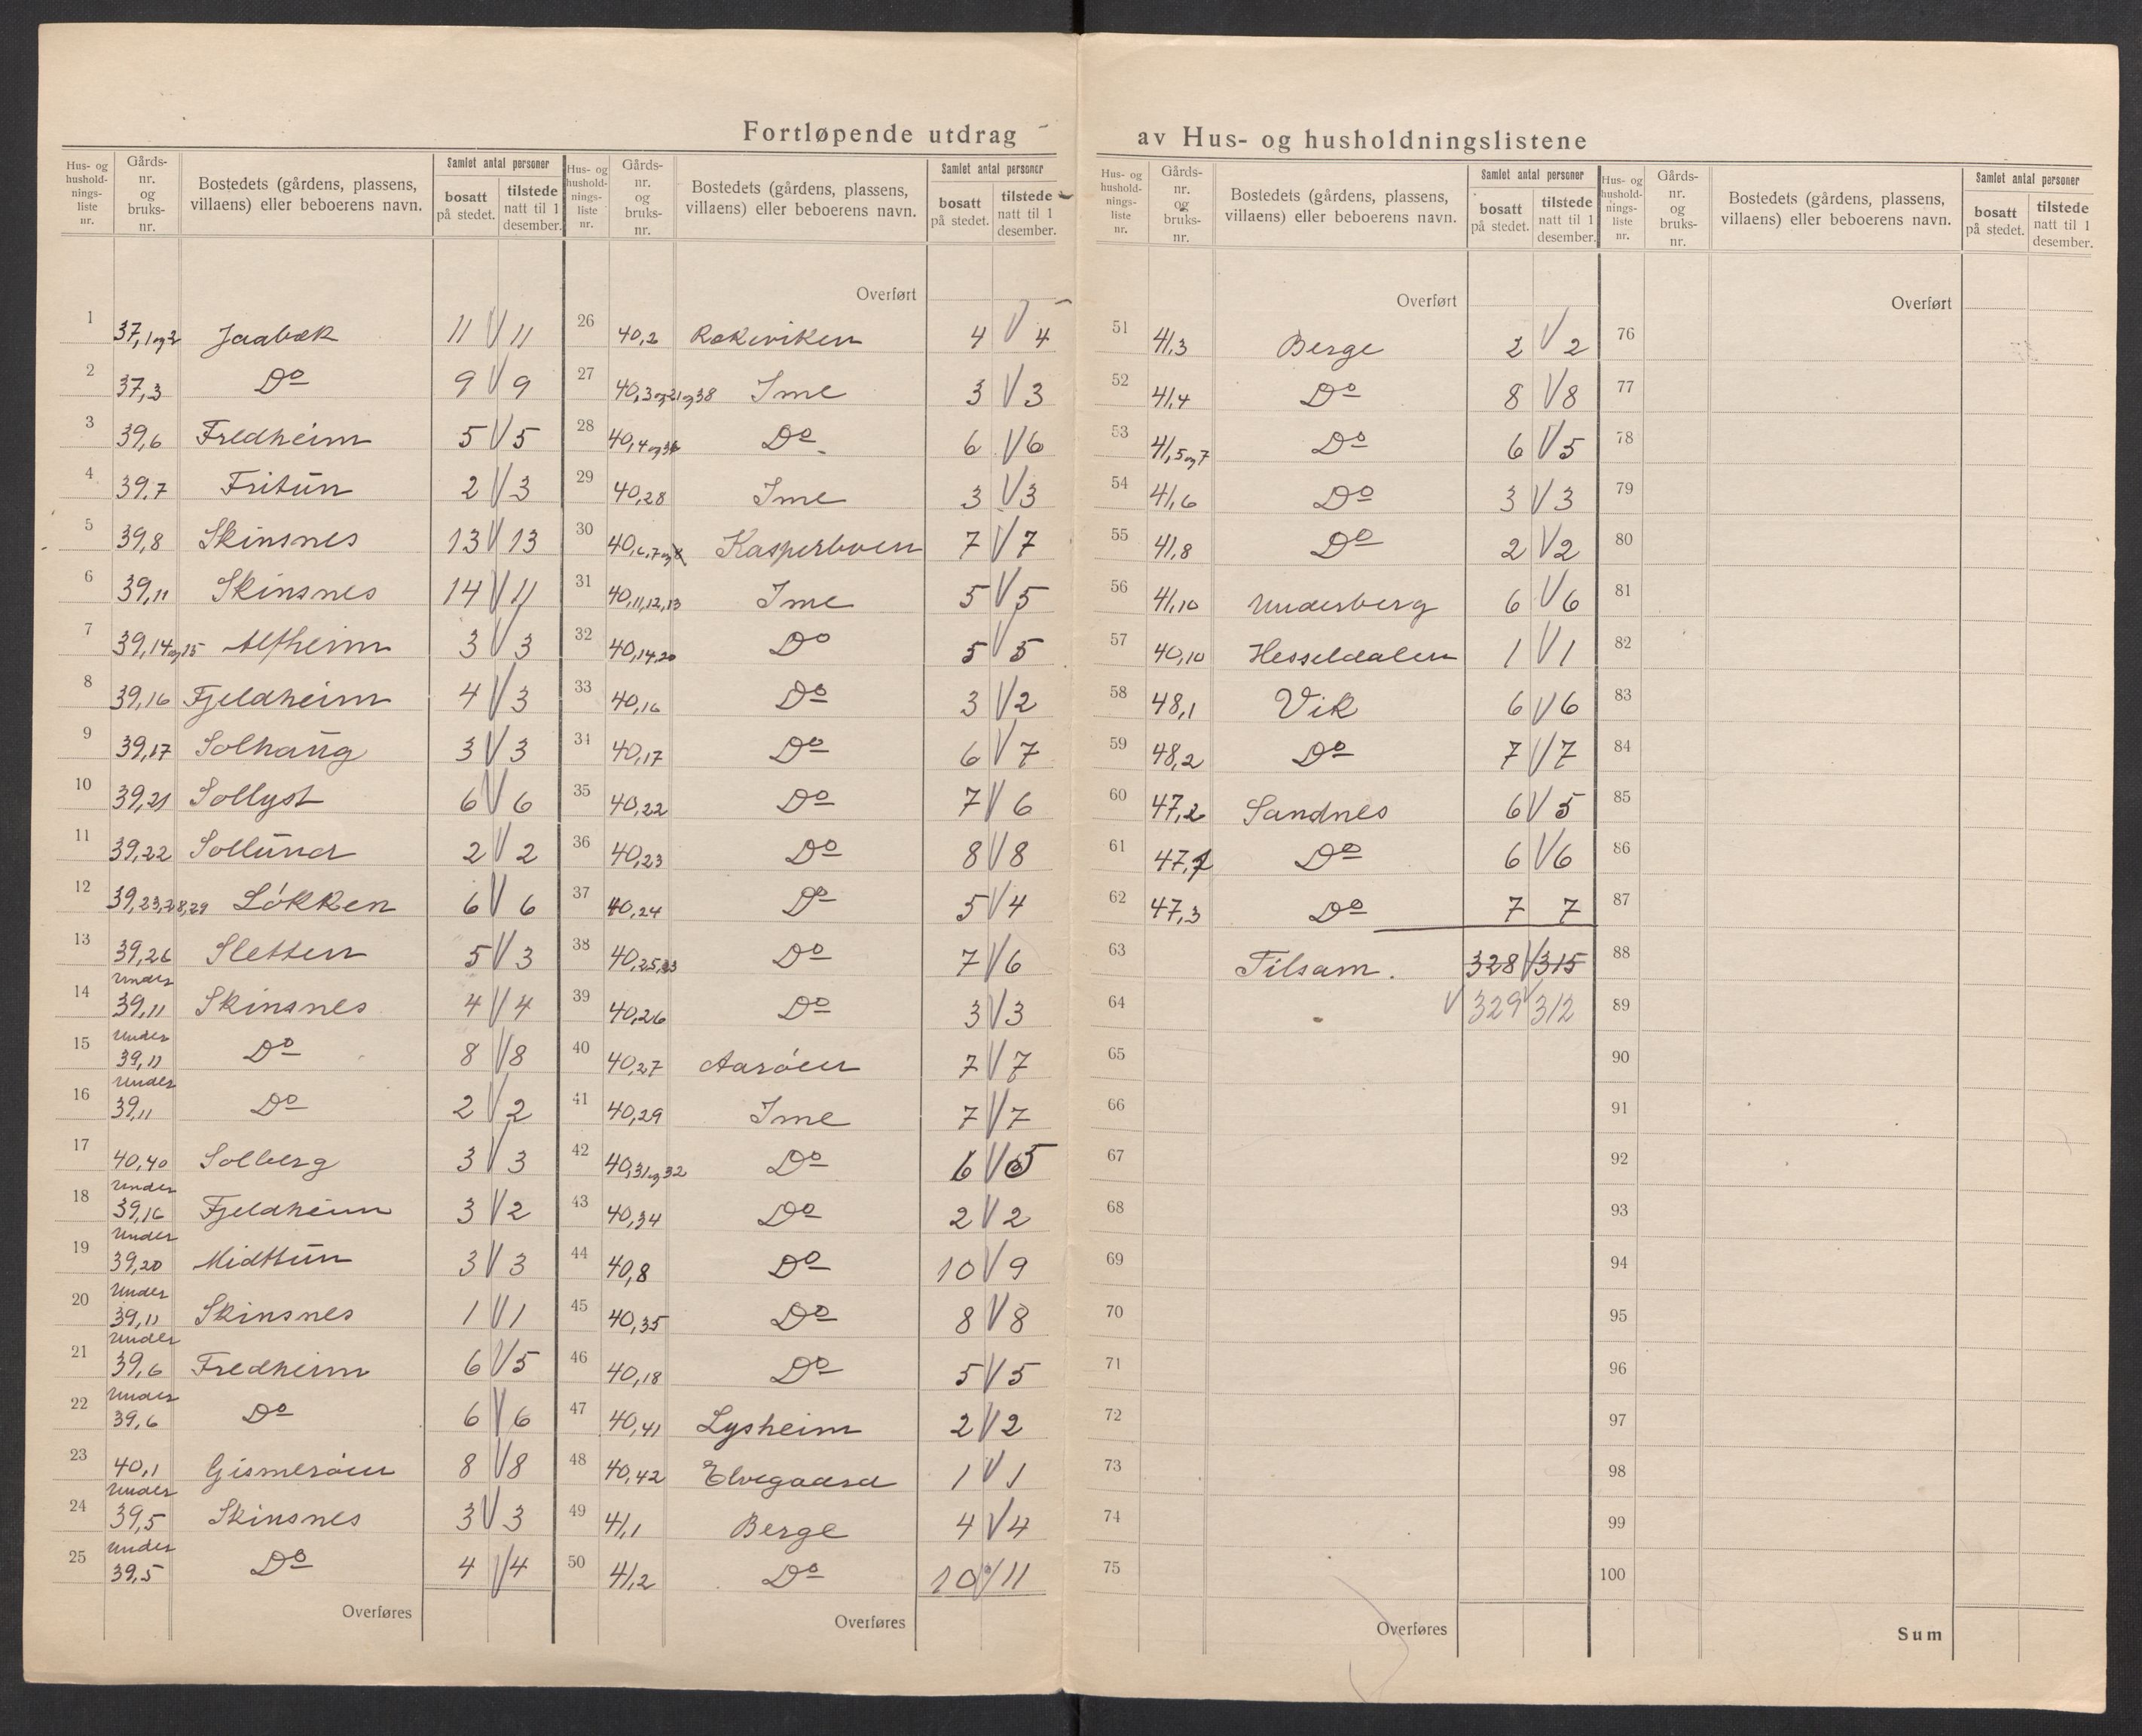 Fortløpende utdrag av Hus- og husholdningslistene
Hus- og husholdnings-liste nr. | Gårds-nr. og bruks-nr. | Bostedets (gårdens, plassens, villaens) eller beboerens navn. | Samlet antal personer | bosatt på stedet. | tilstede natt til 1 desember.
1 37,1og2 Jaabæk 11 11
2 37,3 Do 9 9
3 39,6 Fredheim 5 5
4 39,7 Fritun 2 3
5 39,8 Skinsnes 13 13
6 39,11 Skinsnes 14 11
7 39,14og15 Alfheim 3 3
8 39,16 Fjeldheim 4 3
9 39,17 Solhaug 3 3
10 39,21 Sollyst 6 6
11 39,22 Sollund 2 2
12 39,23,28,29 Løkken 6 6
13 39,26 Sletten 5 3
14 under 39,11 Skinsnes 4 4
15 under 39,11 Do 8 8
16 under 39,11 Do 2 2
17 40,40 Solberg 3 3
18 under 39,16 Fjeldheim 3 2
19 under 39,20 Midttun 3 3
20 under 39,11 Skinsnes 1 1
21 under 39,6 Fredheim 6 5
22 under 39,6 Do 6 6
23 40,1 Gismerøen 8 8
24 under 39,5 Skinsnes 3 3
25 under 39,5 Do 4 4
Overføres
Hus- og husholdnings-liste nr. | Gårds-nr. og bruks-nr. | Bostedets (gårdens, plassens, villaens) eller beboerens navn. | Samlet antal personer | bosatt på stedet. | tilstede natt til 1 desember.
Overført
26 40,2 Rækeviken 4 4
27 40,3og21og38 Ime 3 3
28 40,4og36 Do 6 6
29 40,28 Ime 3 3
30 40,6,7og Kasperboen 7 7
31 40,11,12,13 Ime 5 5
32 40,14,20 Do 5 5
33 40,16 Do 3 2
34 40,17 Do 6 7
35 40,22 Do 7 6
36 40,23 Do 8 8
37 40,24 Do 5 4
38 40,25,33 Do 7 6
39 40,26 Do 3 3
40 40,27 Aarøen 7 7
41 40,29 Ime 7 7
42 40,31og32 Do 6 5
43 40,34 Do 2 2
44 40,8 Do 10 9
45 40,35 Do 8 8
46 40,18 Do 5 5
47 40,41 Lysheim 2 2
48 40,42 Elvegaard 1 1
49 41,1 Berge 4 4
50 41,2 Do 10 11
Overføres
Hus- og husholdnings-liste nr. | Gårds-nr. og bruks-nr. | Bostedets (gårdens, plassens, villaens) eller beboerens navn. | Samlet antal personer | bosatt på stedet. | tilstede natt til 1 desember.
Overført
51 41,3 Berge 2 2
52 41,4 Do 8 8
53 41,5og7 Do 6 5
54 41,6 Do 3 3
55 41,8 Do 2 2
56 41,10 Underberg 6 6
57 40,10 Hesseldalen 1 1
58 48,1 Vik 6 6
59 48,2 Do 7 7
60 47,2 Sandnes 6 5
61 47,1 Do 6 6
62 47,3 Do 7 7
63 Tilsam. 328 315
64 329 312
65
66
67
68
69
70
71
72
73
74
75
Overføres
Hus- og husholdnings-liste nr. | Gårds-nr. og bruks-nr. | Bostedets (gårdens, plassens, villaens) eller beboerens navn. | Samlet antal personer | bosatt på stedet. | tilstede natt til 1 desember.
Overført
76
77
78
79
80
81
82
83
84
85
86
87
88
89
90
91
92
93
94
95
96
97
98
99
100
Sum